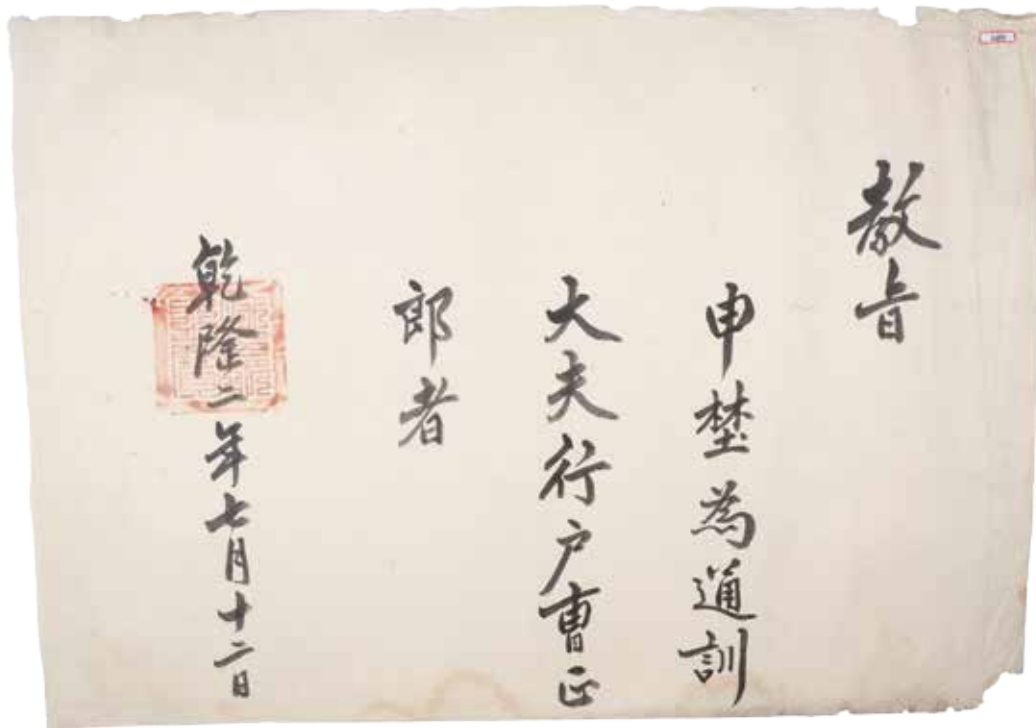 教旨
申埜為通訓
大夫行户曹正
郎者
乾隆二年七月十二日